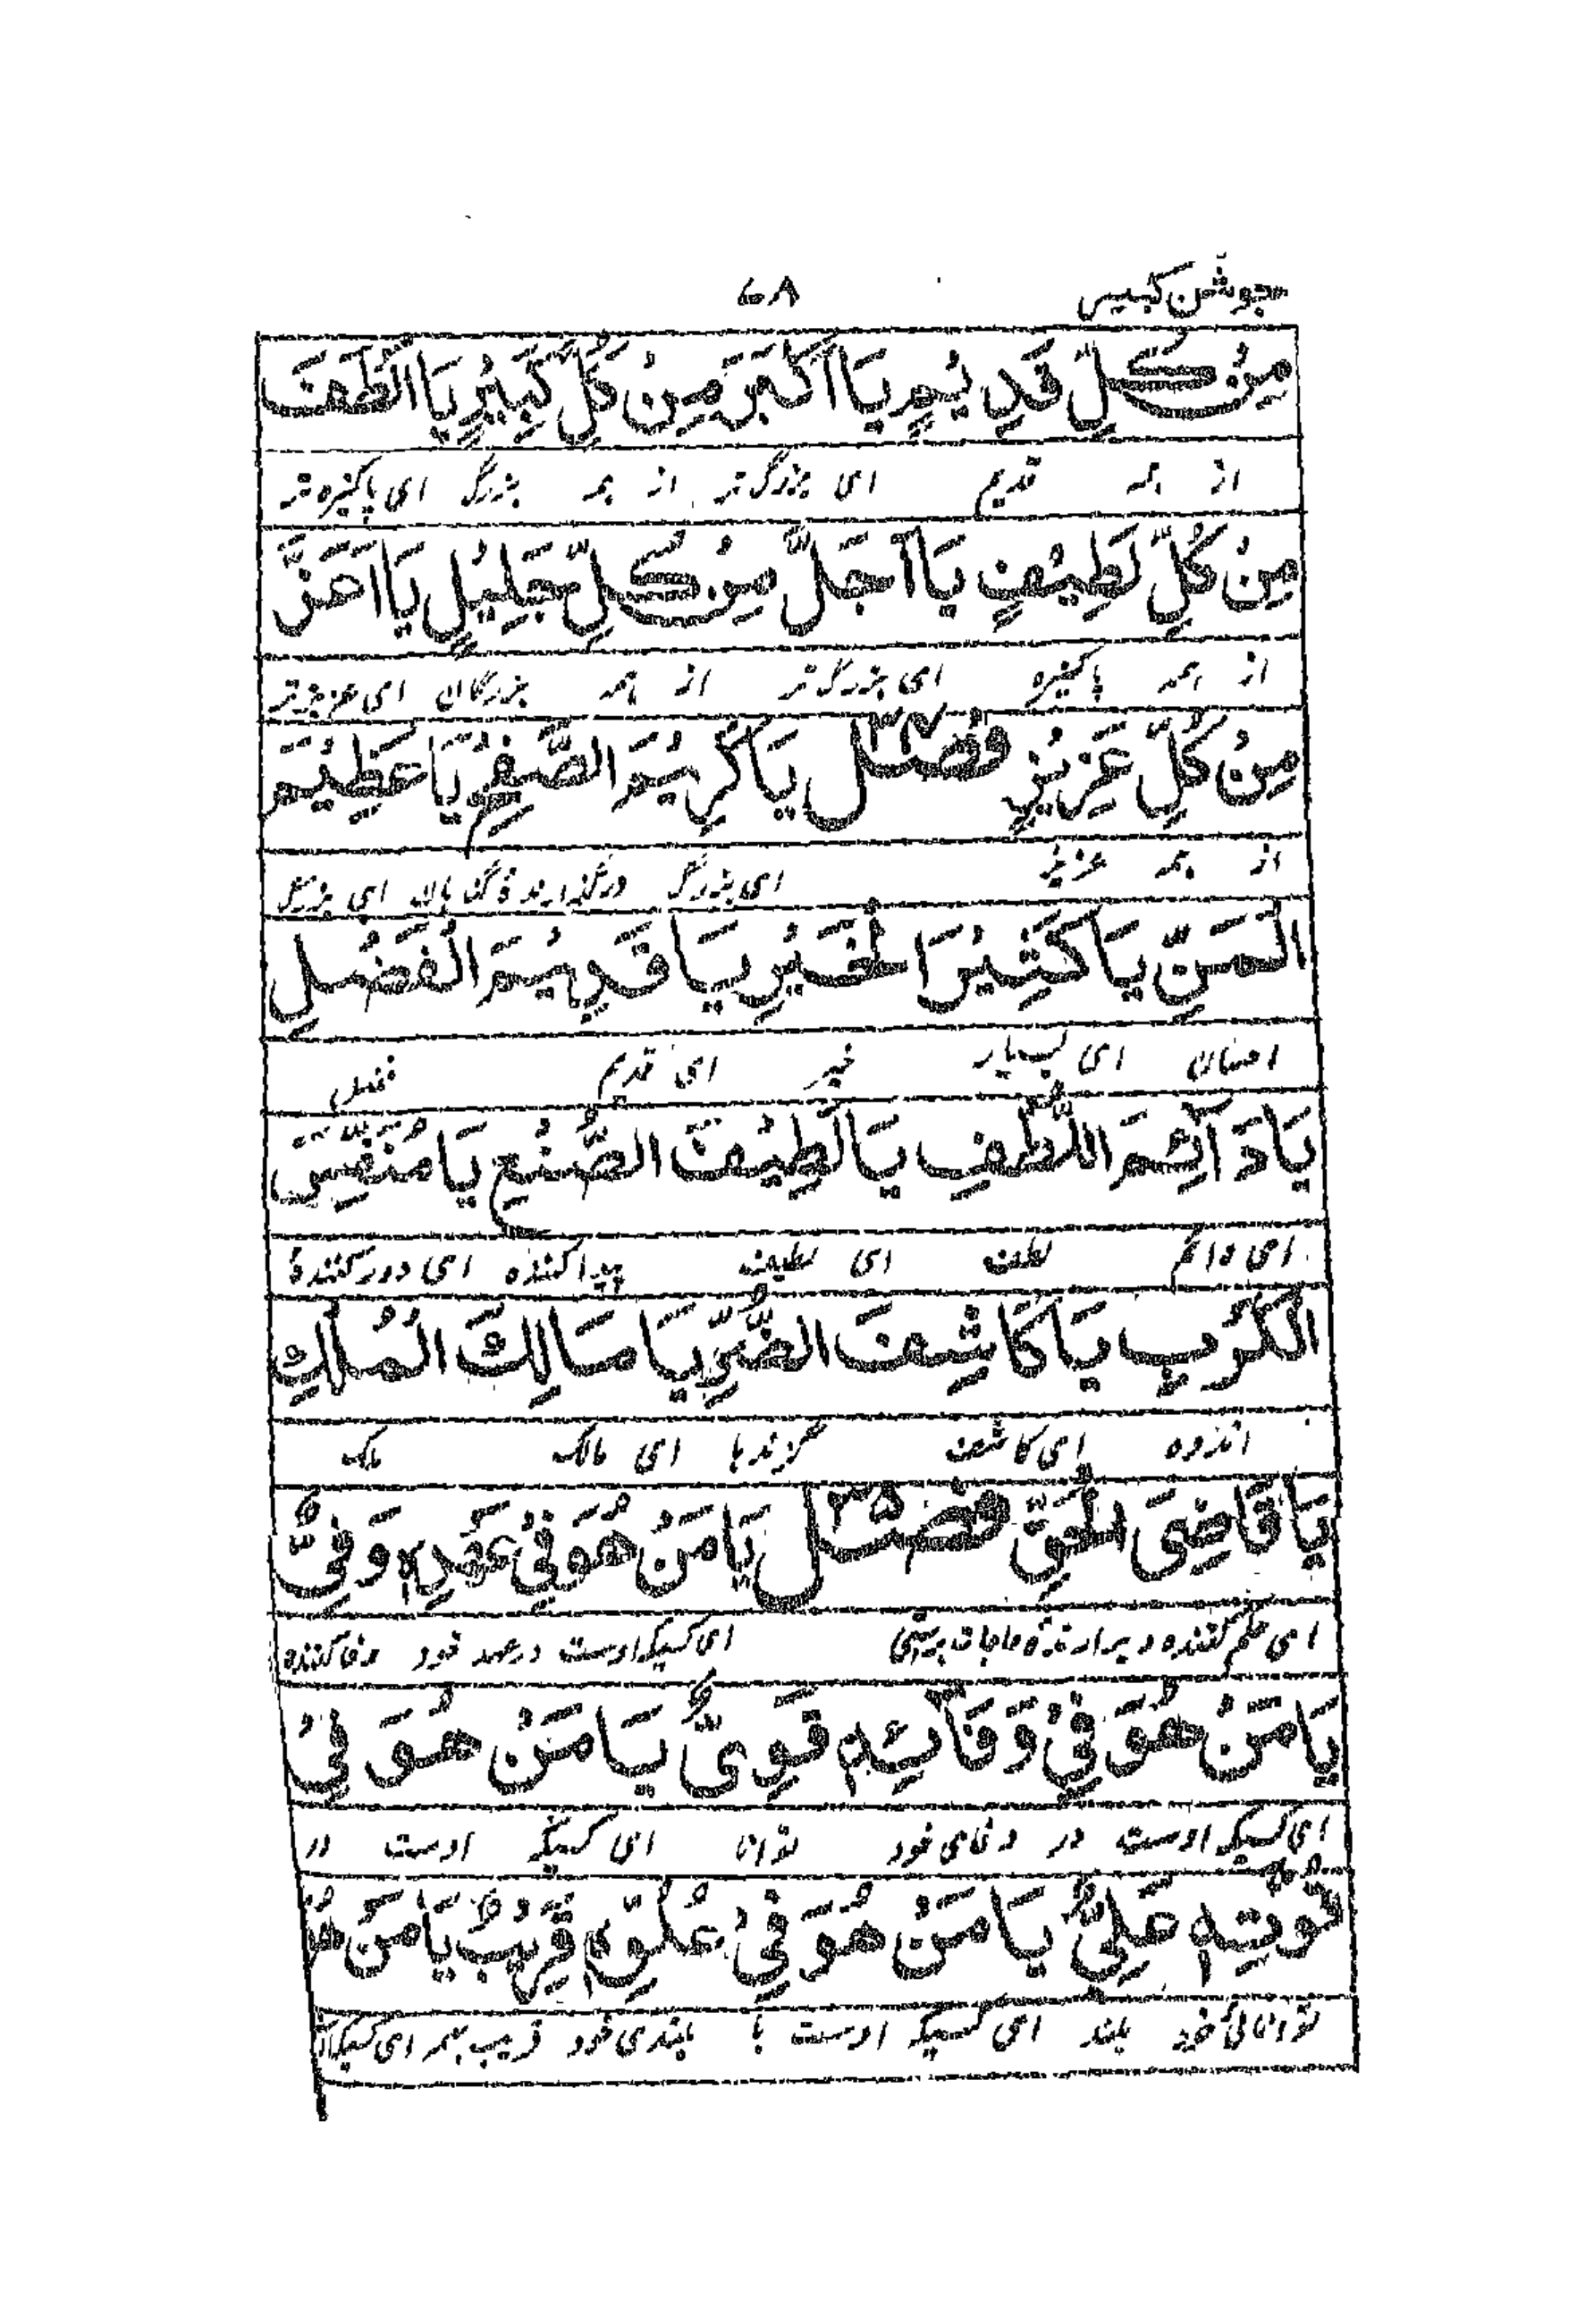 جوشن کبیر ۶۸
مِنْ كُلِّ قَدِيْمٍ يَا اَكْبَرَ مِنْ كُلِّ كَبِيْرٍ يَا اَلْطَفَ
از همه قدیم ای بزرگ تر از همه بزرگ ای پاکیزه تر
مِنْ كُلِّ لَطِيْفٍ يَا اَجَلَّ مِنْ كُلِّ جَلِيْلٍ يَا اَعَزَّ
از همه پاکیزه ای بزرگ تر از همه بزرگان ای عزیزتر
مِنْ كُلِّ عَزِيْزٍ فصل ۳۴ يَا كَرِيْمَ الصَّفْحِ يَا عَظِيْمَ
از همه عزیز ای بزرگ درگذارندۀ گناهان ای بزرگ
الْمَنِّ يَا كَثِيْرَ الْخَيْرِ يَا قَدِيْمَ الْفَضْلِ
احسان ای بسیار خیر ای قدیم فضل
يَا دَآئِمَ اللُّطْفِ يَا لَطِيْفَ الصُّنْعِ يَا مُنَفِّسَ
ای دائم لطف ای لطیف پیدا کننده ای دور کنندۀ
الْكَرْبِ يَا كَاشِفَ الضُّرِّ يَا مَالِكَ الْمُلْكِ
اندوه ای کاشف گزندها ای مالک ملک
يَا قَاضِیَ الْحَقِّ فصل ۳۵ يَا مَنْ هُوَ فِیْ عَهْدِهٖ وَفِیٌّ
ای حکم کننده و برارندۀ حاجات براستی ای کسیکه اوست در عهد خود وفا کننده
يَا مَنْ هُوَ فِیْ وَفَآئِهٖ قَوِیٌّ يَا مَنْ هُوَ فِیْ
ای کسیکه اوست در وفای خود توانا ای کسیکه اوست در
قُوَّتِهٖ عَلِیٌّ يَا مَنْ هُوَ فِیْ عُلُوِّهٖ قَرِيْبٌ يَا مَنْ هُوَ
توانائی خود بلند ای کسیکه اوست با بلندی خود قریب بهمه ای کسیکه